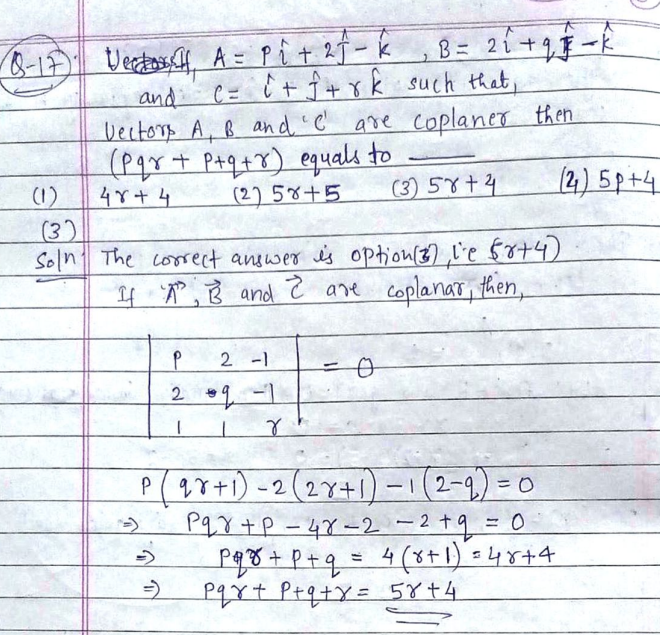 Q-17 If, A = Pî + 2ĵ - k̂ , B = 2î + qĵ - k̂
and C = î + ĵ + r k̂ such that,
Vectors A, B and 'C' are coplaner then
(Pqr + P+q+r) equals to ____
(1) 4r + 4 (2) 5r+5 (3) 5r+4 (4) 5p+4
(3)
Soln The correct answer is option(3), i.e (5r+4)
If A⃗, B⃗ and C⃗ are coplanar, then,
| P 2 -1 |
| 2 q -1 | = 0
| 1 1 r |
P(qr+1) - 2(2r+1) - 1(2-q) = 0
⇒ Pqr + P - 4r - 2 - 2 + q = 0
⇒ Pqr + P + q = 4(r+1) = 4r+4
⇒ Pqr + P+q+r = 5r+4